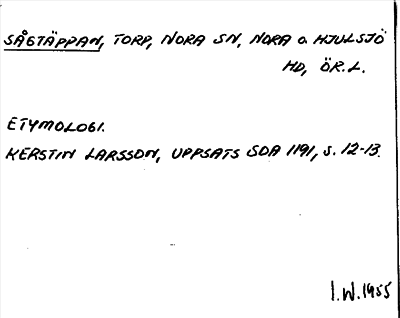 SÅGTÄPPAN, TORP, NORA SN, NORA O. HJULSJÖ
HD, ÖR.L.
ETYMOLOGI.
KERSTIN LARSSON, UPPSATS SDA 1191, S. 12-13.
I.W.1955